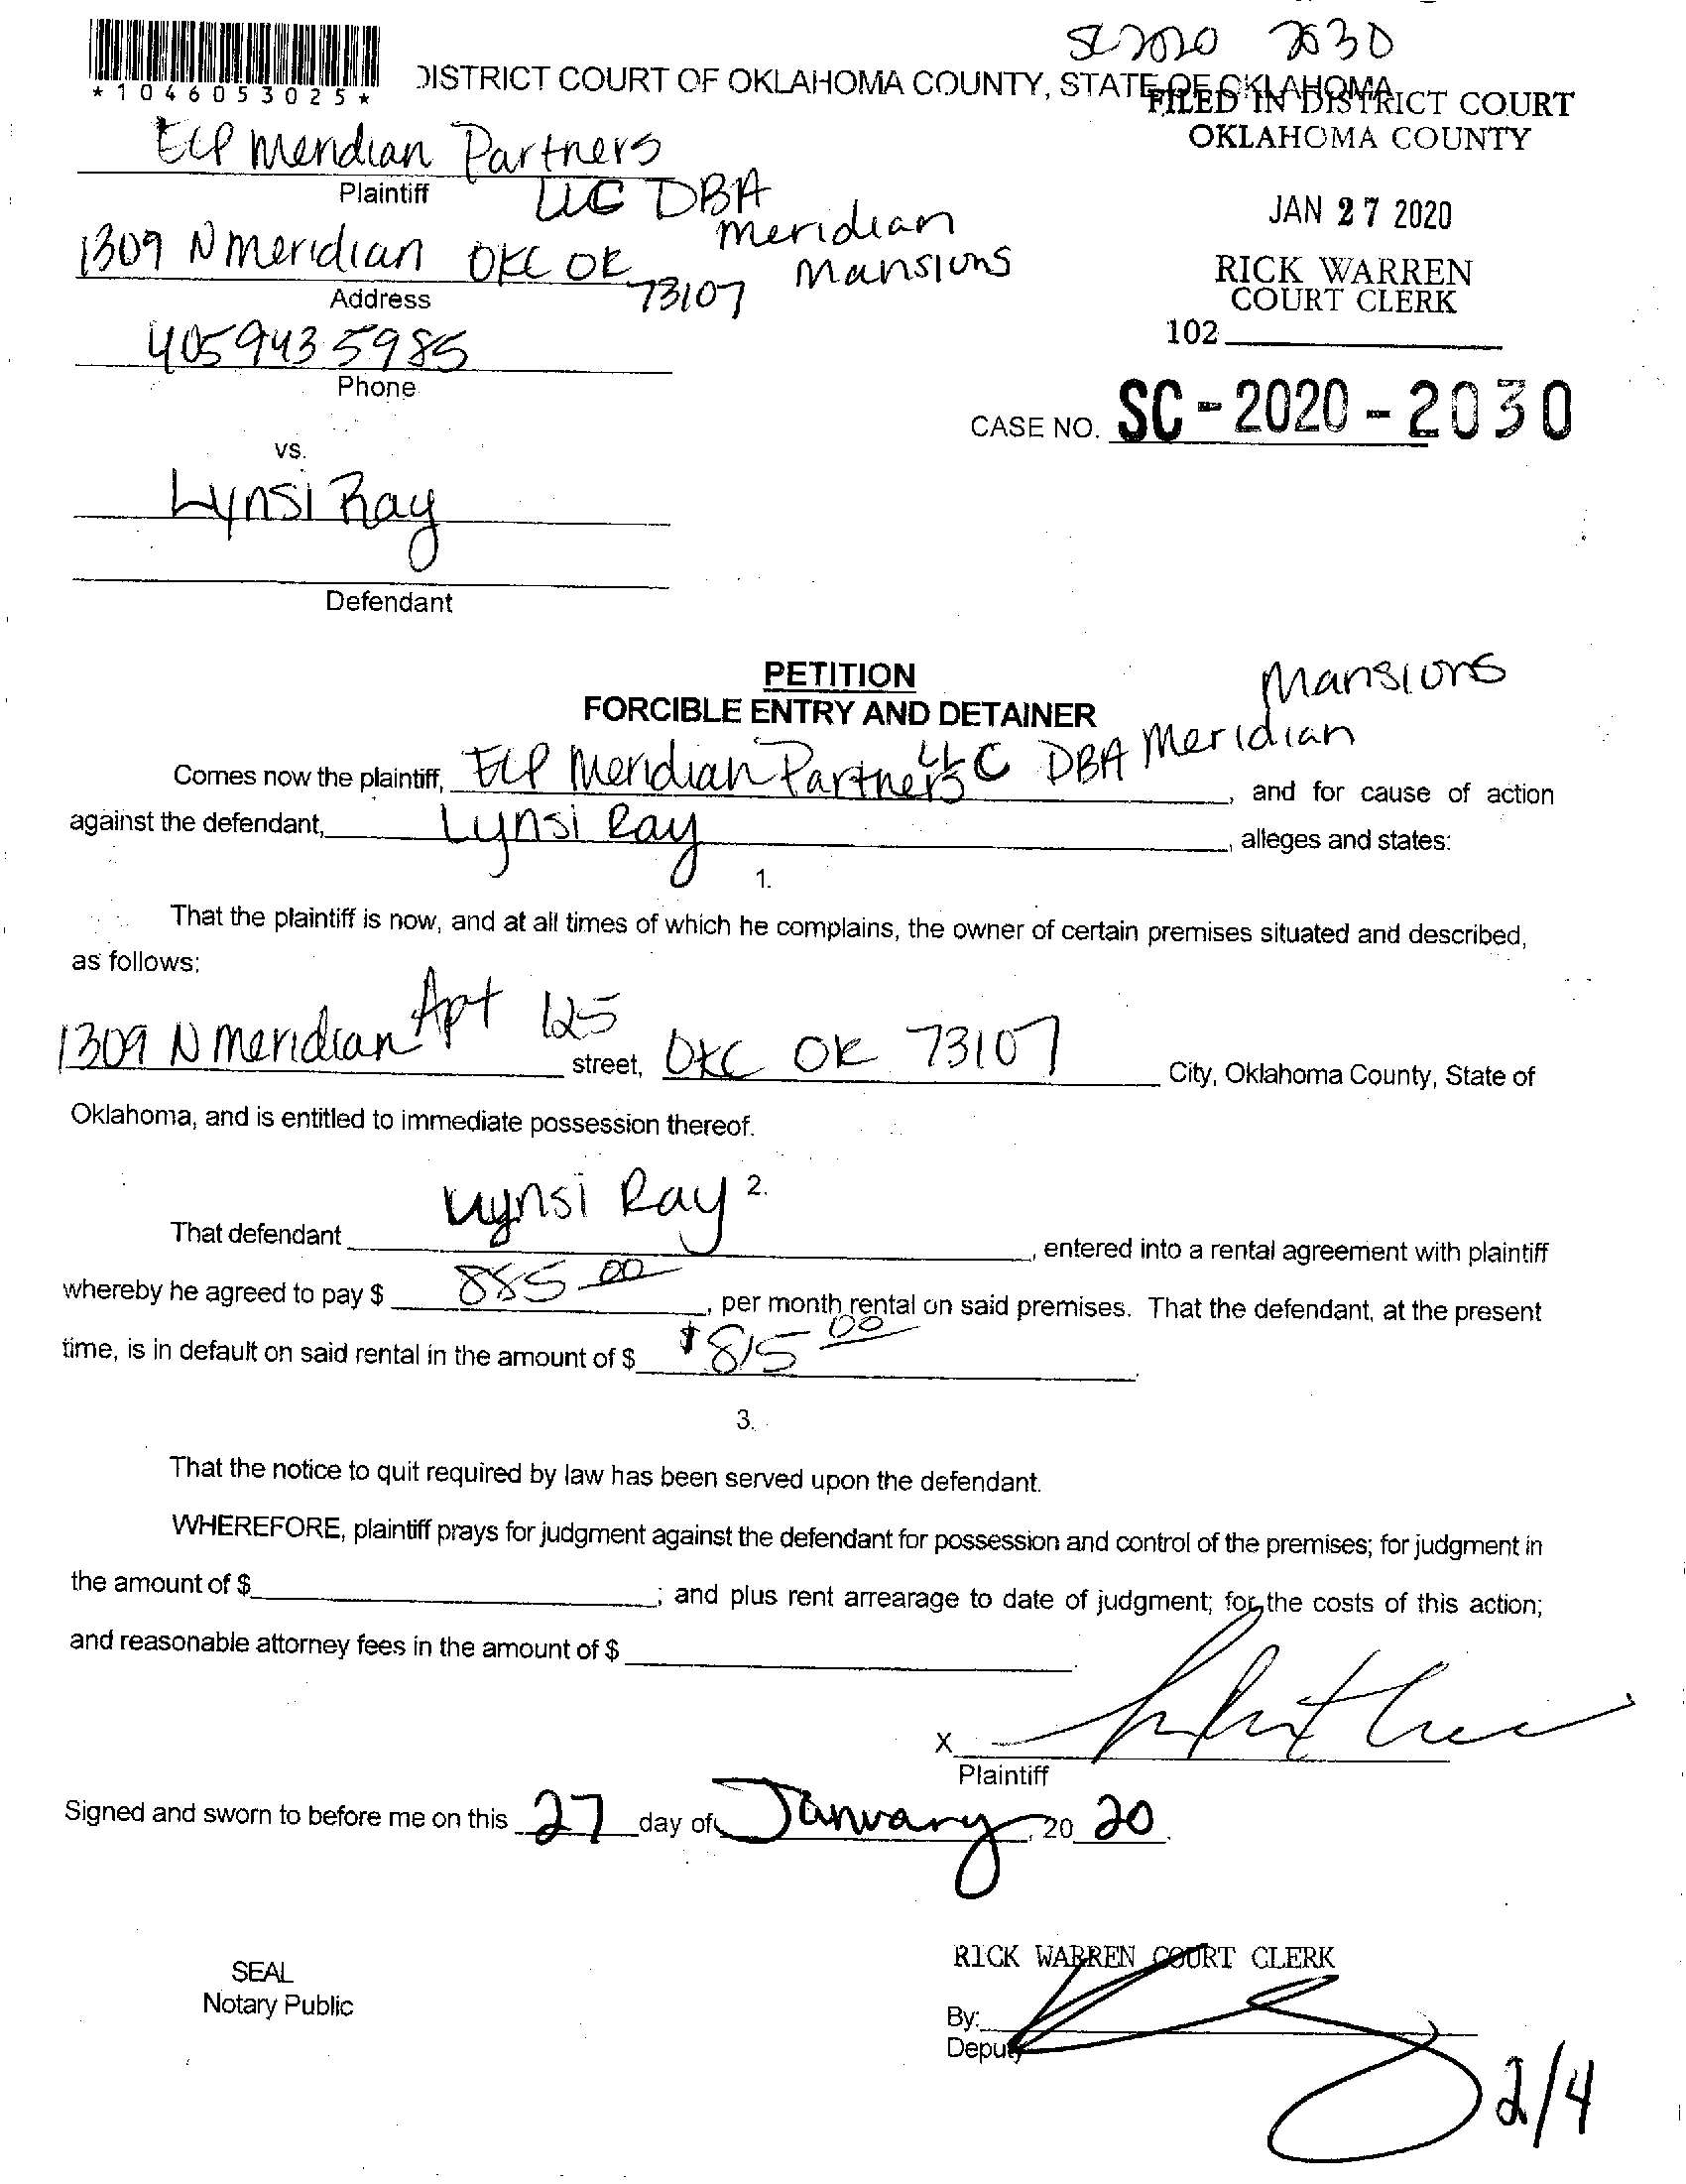 SC 2020 2030
*1046053025*
DISTRICT COURT OF OKLAHOMA COUNTY, STATE OF OKLAHOMA
FILED IN DISTRICT COURT
OKLAHOMA COUNTY
JAN 27 2020
RICK WARREN
COURT CLERK
102
ECP Meridian Partners
Plaintiff
LLC DBA
Meridian
Mansions
1309 N Meridian OKC OK
73107
Address
405 943 5985
Phone
CASE NO. SC-2020-2030
vs.
Lynsi Ray
Defendant
PETITION
FORCIBLE ENTRY AND DETAINER
Mansions
Comes now the plaintiff, ECP Meridian Partners LLC DBA Meridian, and for cause of action
against the defendant, Lynsi Ray, alleges and states:
1.
That the plaintiff is now, and at all times of which he complains, the owner of certain premises situated and described,
as follows:
1309 N Meridian Apt 125 street, OKC OK 73107 City, Oklahoma County, State of
Oklahoma, and is entitled to immediate possession thereof.
2.
That defendant Lynsi Ray, entered into a rental agreement with plaintiff
whereby he agreed to pay $ 885 00, per month rental on said premises. That the defendant, at the present
time, is in default on said rental in the amount of $ $815 00.
3.
That the notice to quit required by law has been served upon the defendant.
WHEREFORE, plaintiff prays for judgment against the defendant for possession and control of the premises; for judgment in
the amount of $ ; and plus rent arrearage to date of judgment; for the costs of this action;
and reasonable attorney fees in the amount of $ .
X
Plaintiff
Signed and sworn to before me on this 27 day of January, 20 20.
SEAL
Notary Public
RICK WARREN COURT CLERK
By:
Deputy
2/4